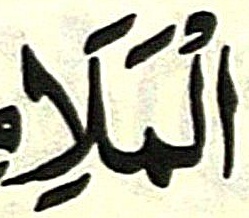 الْمَلَاِ